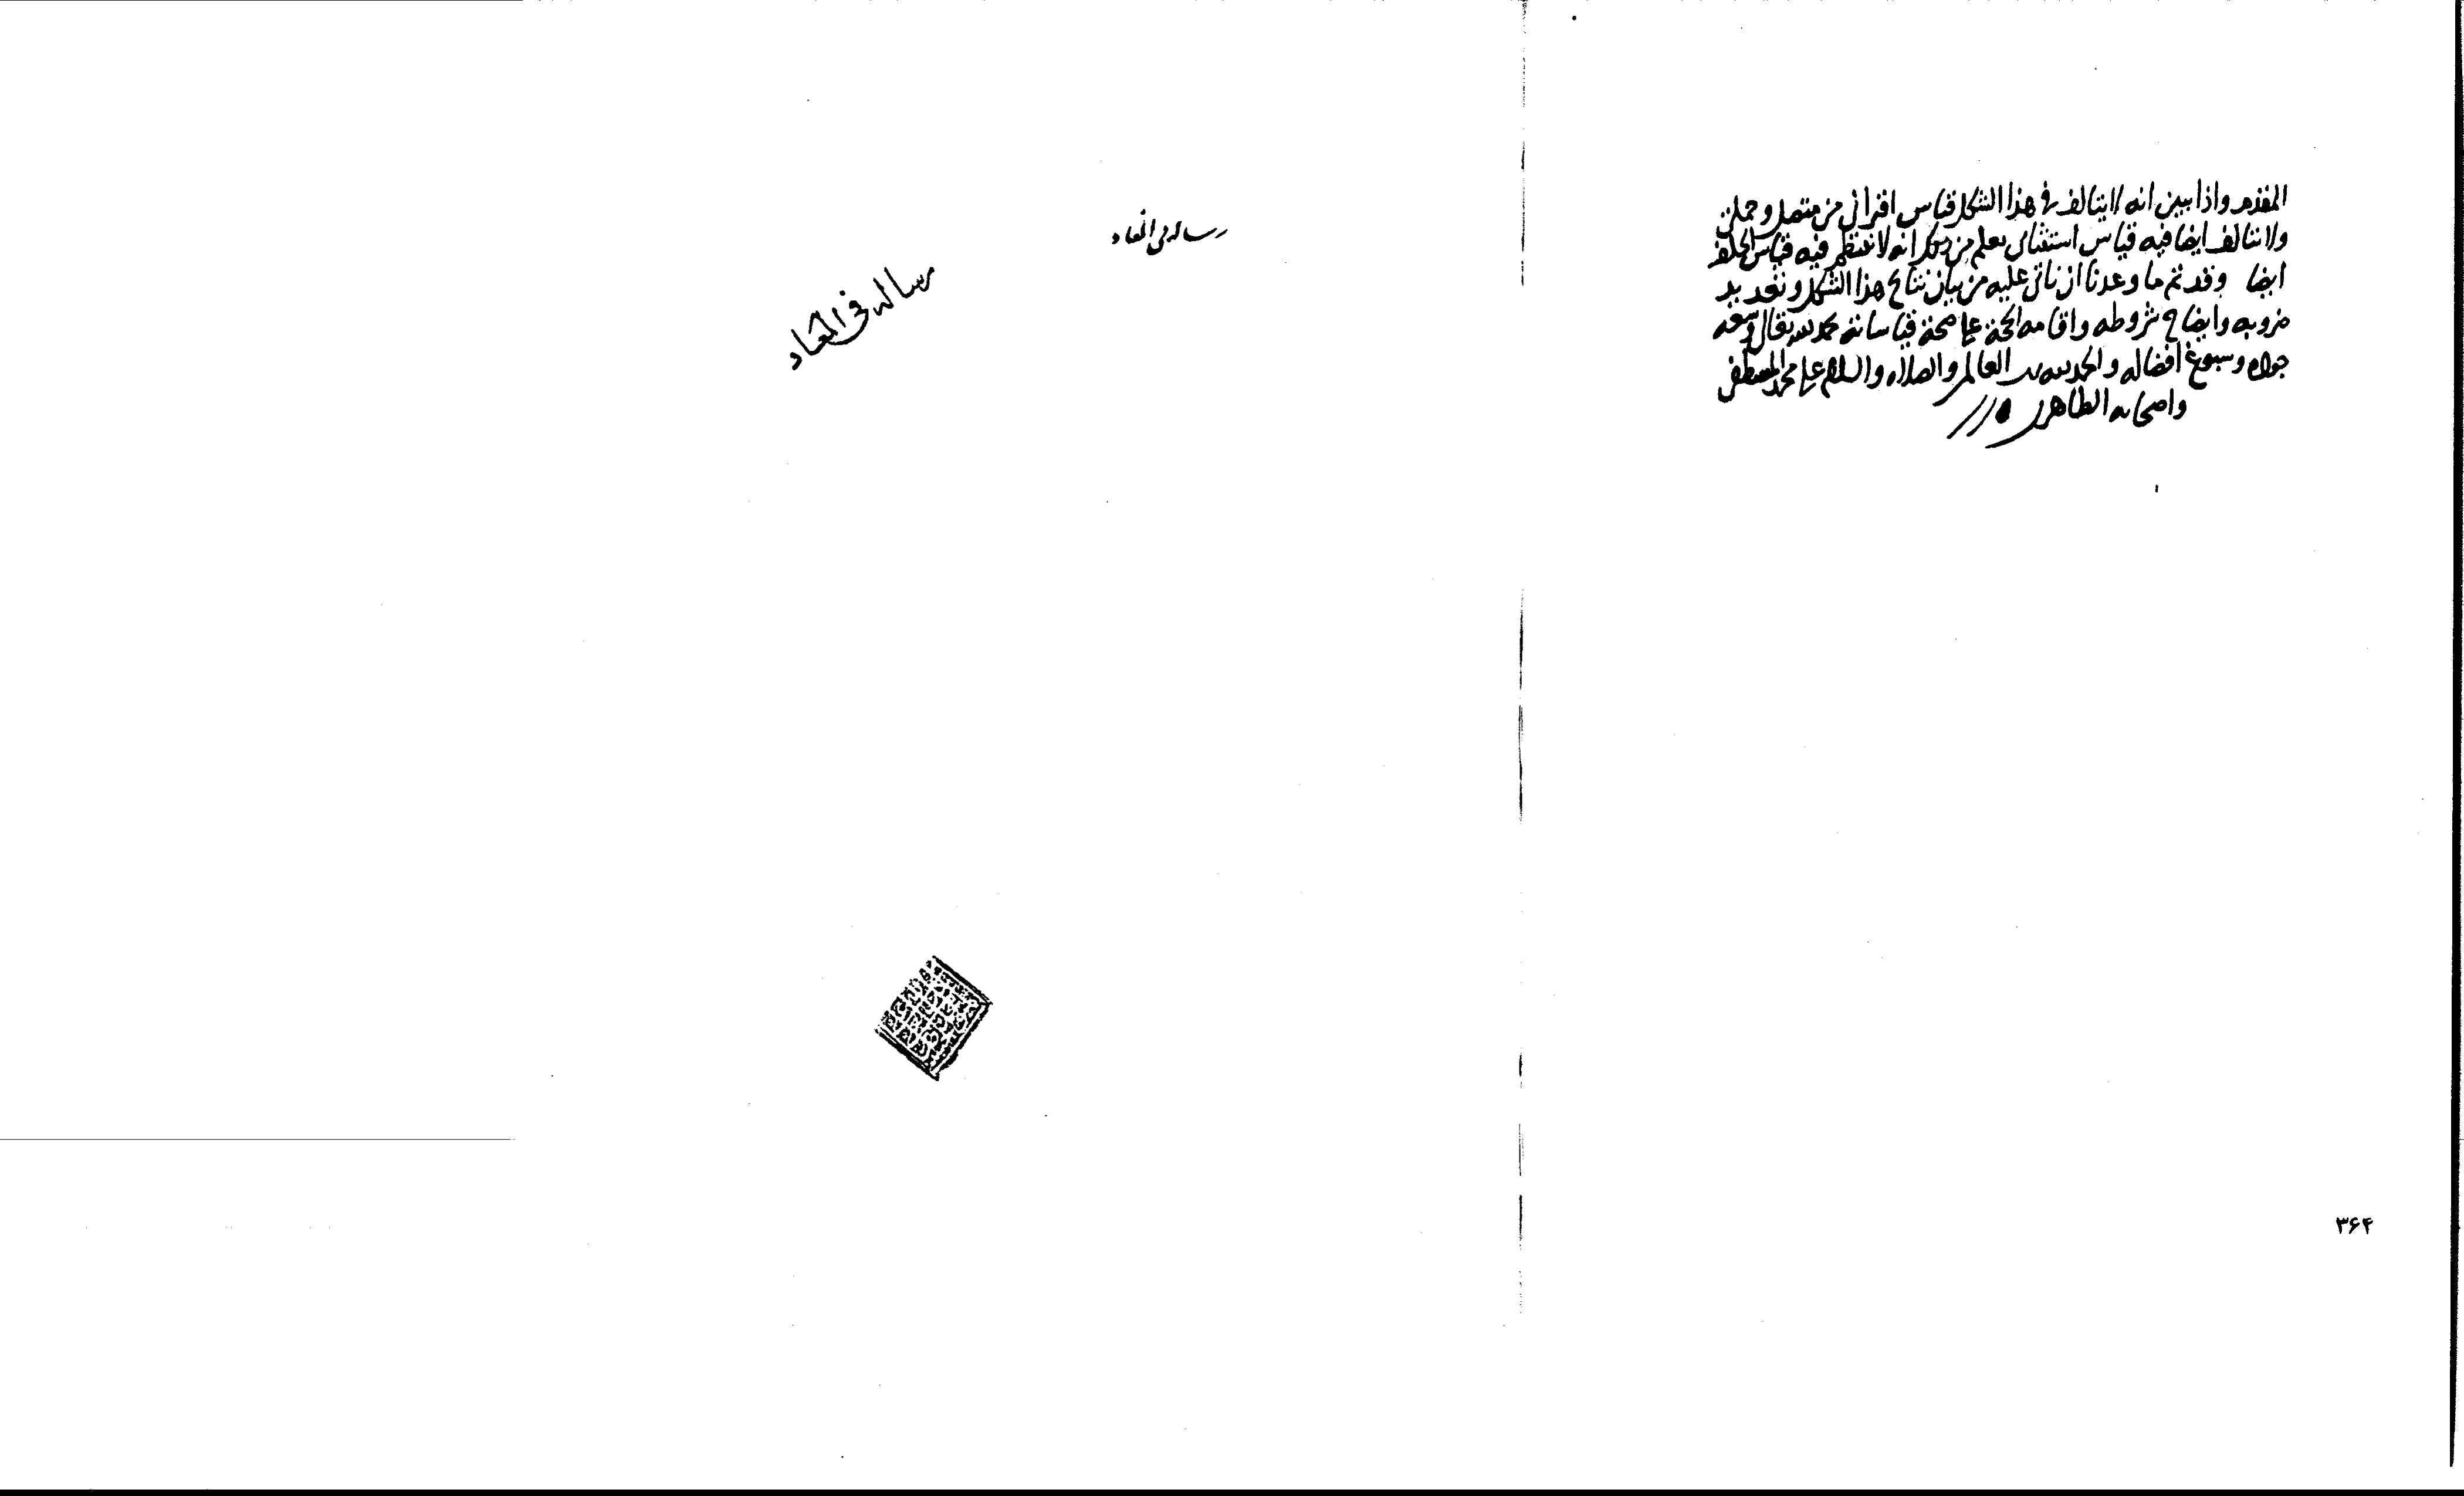 المقدم واذا بين انه لا يتالف فى هذا الشكل قياس اقترانى من متصل وحملى
ولا يتالف ايضا فيه قياس استثنائى يعلم من ذلك انه لا ينتظم فيه قياس الخلف
ايضا وقد تم ما وعدنا ان ناتى عليه من بيان نتائج هذا الشكل و تعديد
ضروبه وايضاح شروطه واقامه الحجة على صحة قياساته بحمد لله تعالى وسعه
جوده وسبوغ افضاله والحمد لله رب العالمين والصلاه والسلام على محمد المصطفى
واصحابه الطاهرين
۳۶۴
رساله فى المعاد
رساله فى المعاد